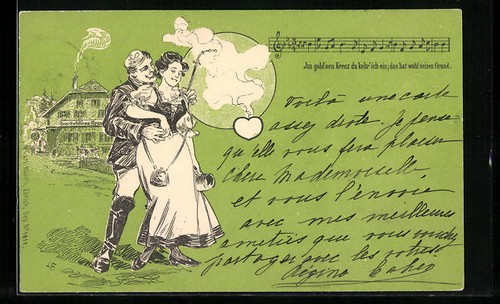 Im gold'nen Kreuz da kehr' ich ein; das hat wohl seinen Grund.
Voilà une carte
assez drole. Je pense
qu'elle vous fera plaisir
chère Mademoiselle
et vous l'envoie
avec mes meilleures
amitiés que vous voudrez
partager avec les votres.